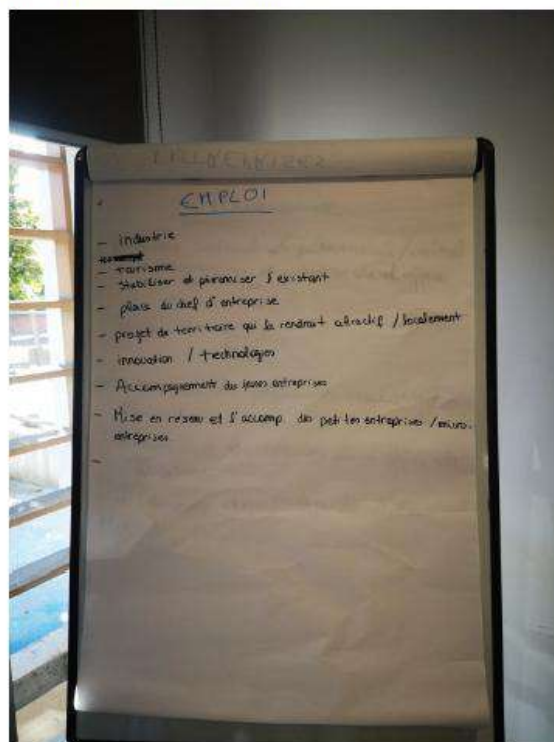 EMPLOI
- industrie
- tourisme
- Stabiliser et pérenniser l'existant
- place du chef d'entreprise
- projet de territoire qui la rendrait attractif / localement
- innovation / technologies
- Accompagnement des jeunes entreprises
- Mise en réseau et l'accomp. des petites entreprises / micro.
entreprises
-